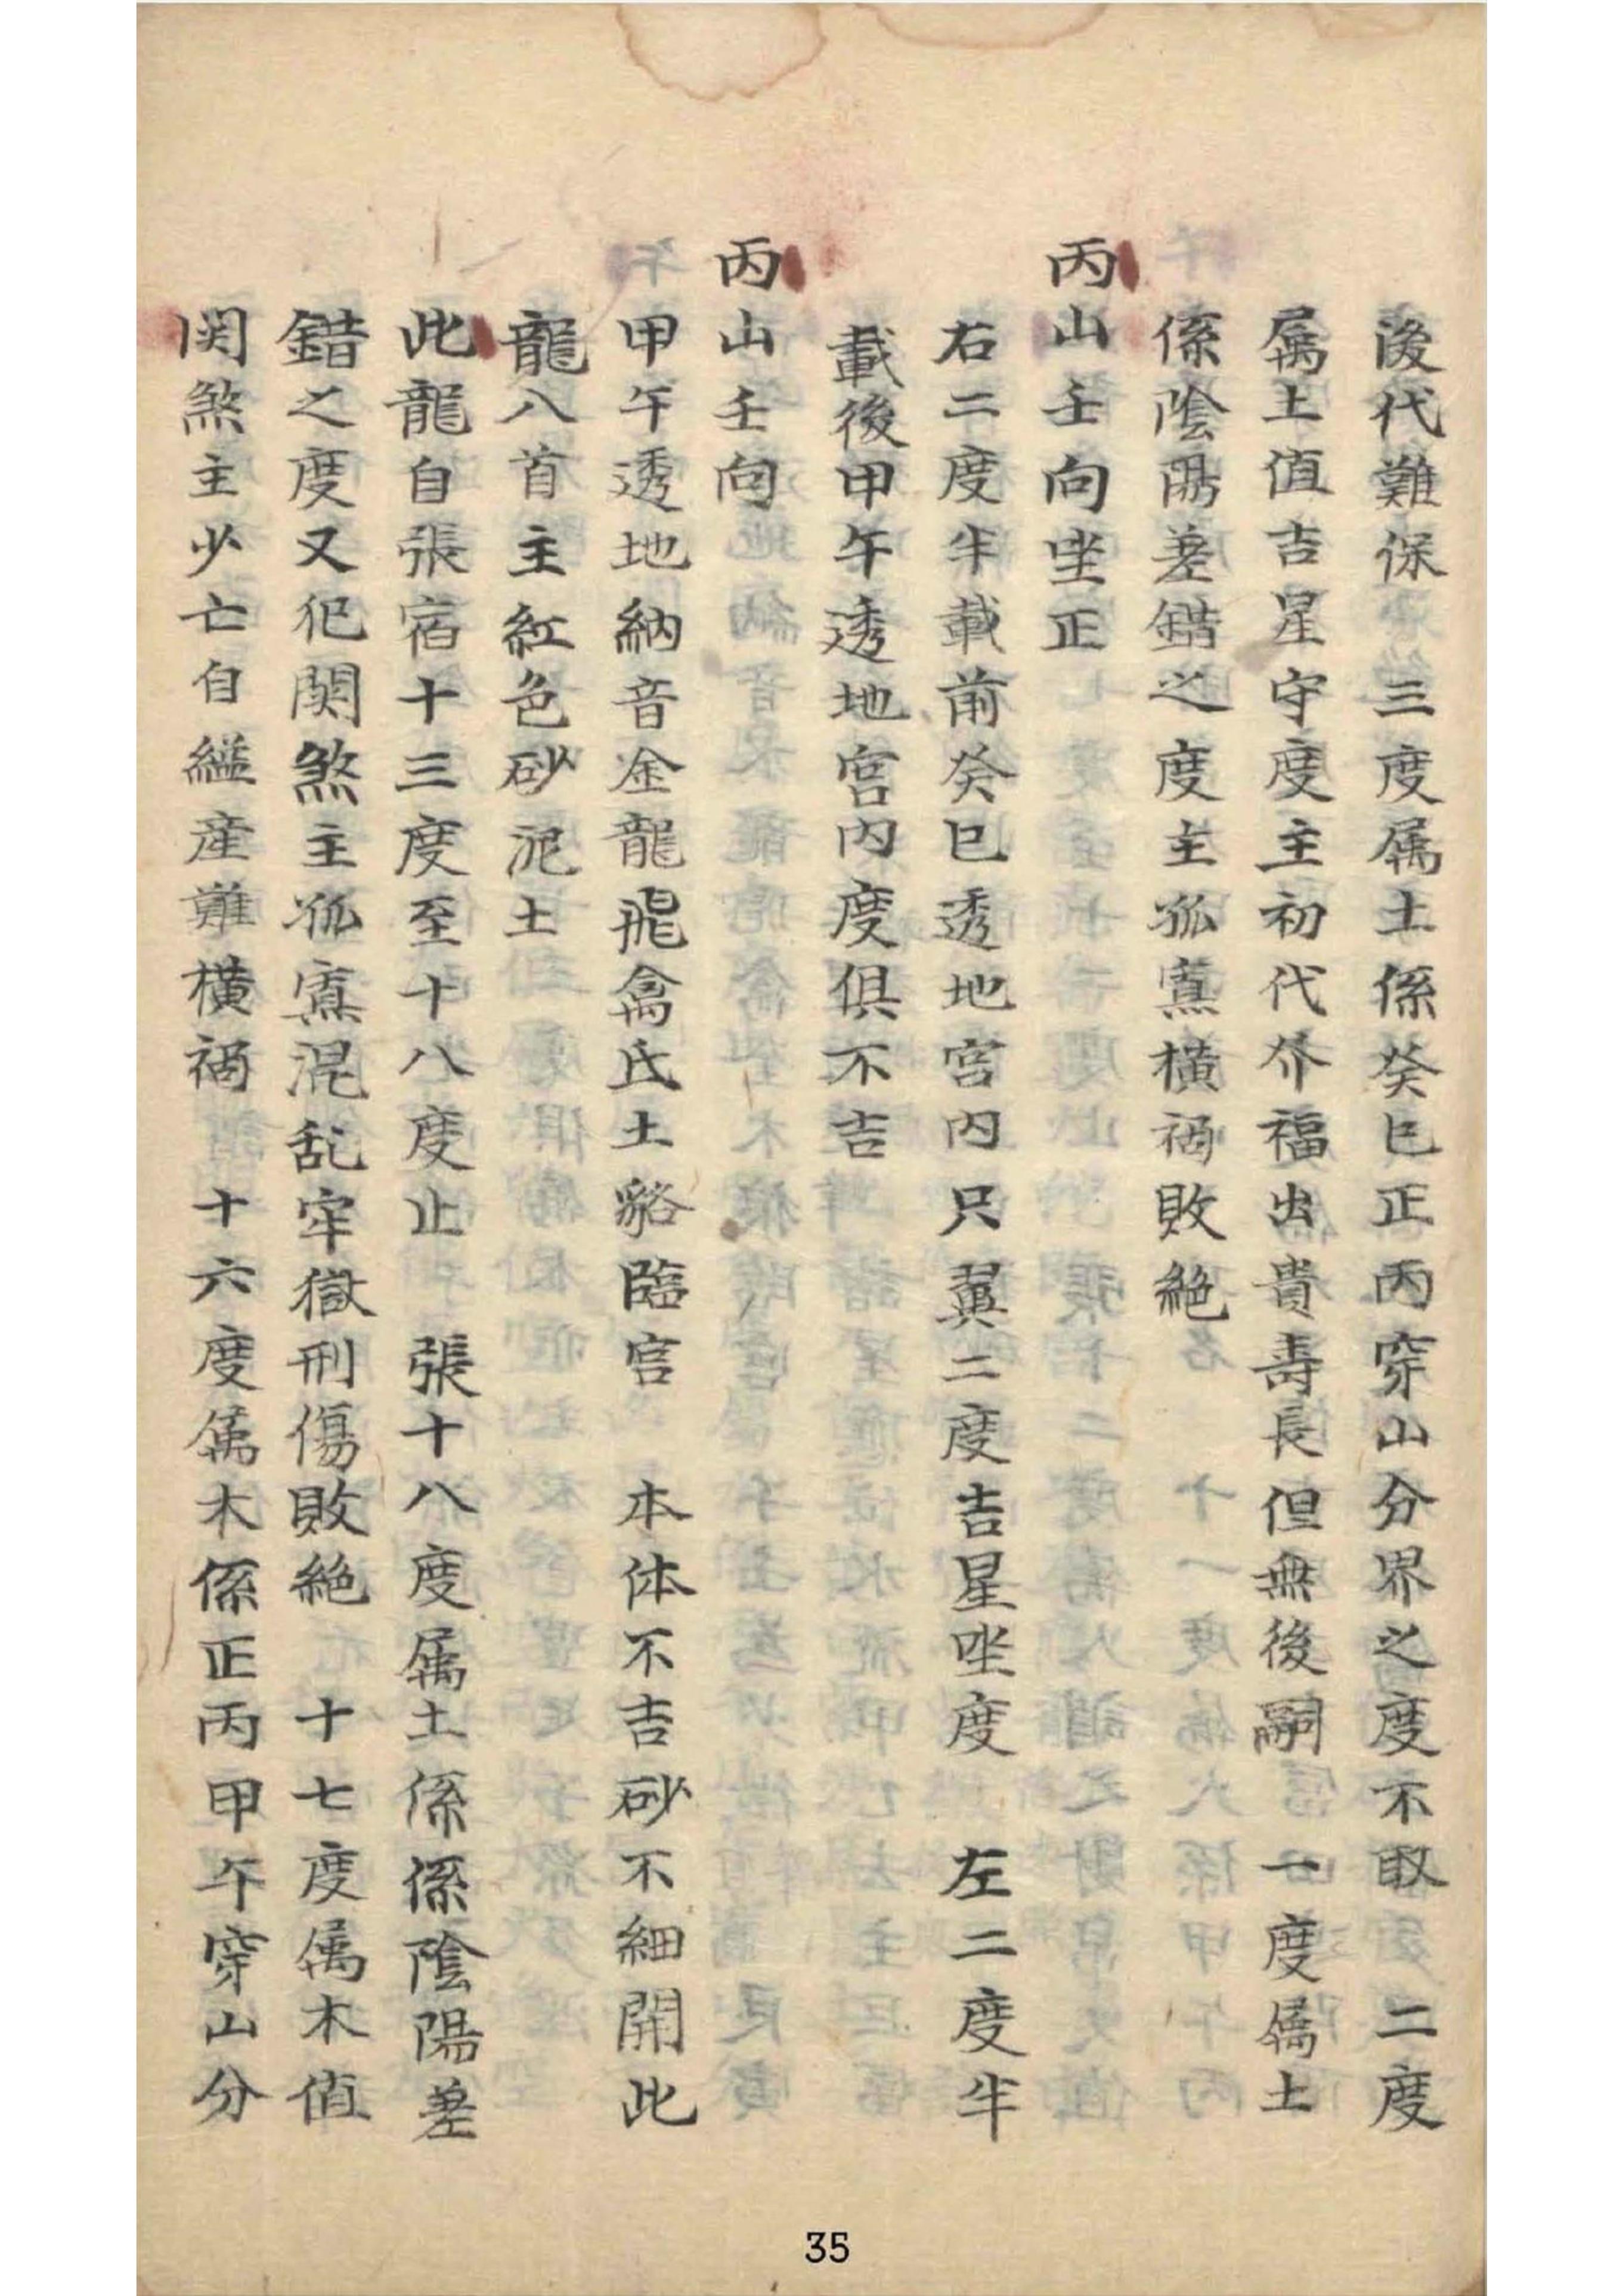 後代難保　三度属土係癸巳正丙穿山分界之度不取　二度
属土值吉星守度主初代介福出貴壽長但無後嗣　一度属土
係陰陽差錯之度主孤寡橫禍敗絕
丙山壬向坐正
右二度半載前癸巳透地宮內只翼二度吉星坐度　左二度半
載後甲午透地宮內度俱不吉
丙山壬向
甲午透地納音金龍飛禽氐土貉臨官　本体不吉砂不細開此
龍八首主紅色砂泥土
此龍自張宿十三度至十八度止　張十八度属土係係陰陽差
錯之度又犯関煞主孤寡混乱牢獄刑傷敗絕　十七度属木值
関煞主少亡自縊産難橫禍　十六度属木係正丙甲午穿山分
35